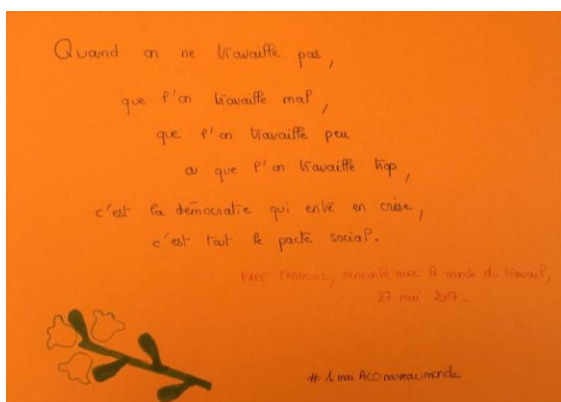 Quand on ne travaille pas,
que l'on travaille mal,
que l'on travaille peu
ou que l'on travaille trop,
c'est la démocratie qui entre en crise,
c'est tout le pacte social.
PAPE FRANCOIS, rencontre avec le monde du travail,
27 mai 2017.
# 1 mai ACO nouveau monde